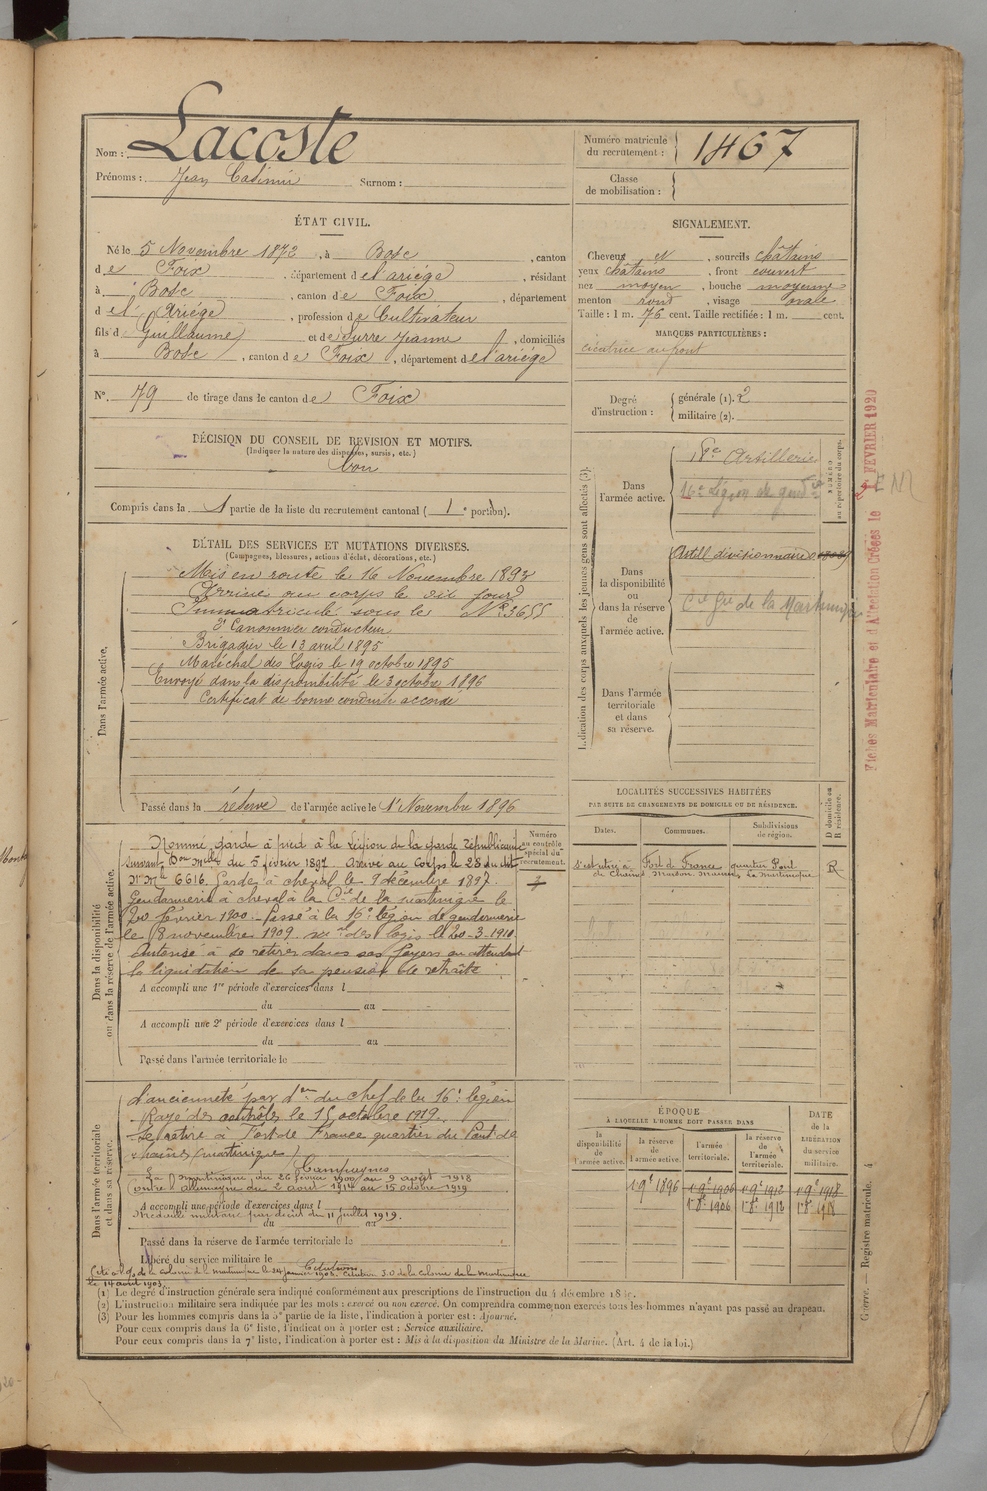 Nom : Lacoste
Prénoms : Jean Casimir Surnom :
Numéro matricule du recrutement : 1467
Classe de mobilisation :
ÉTAT CIVIL.
Né le 5 Novembre 1872, à Bosc, canton
de Foix, département de l'ariége, résidant
à Bosc, canton de Foix, département
de l'Ariége, profession de Cultivateur
fils de Guillaume et de Surre Jeanne, domiciliés
à Bosc, canton de Foix, département de l'ariége
N° 79 de tirage dans le canton de Foix
DÉCISION DU CONSEIL DE REVISION ET MOTIFS.
(Indiquer la nature des dispenses, sursis, etc.)
bon
Compris dans la 1 partie de la liste du recrutement cantonal (1e portion).
SIGNALEMENT.
Cheveux et, sourcils châtains
yeux châtains, front couvert
nez moyen, bouche moyenne
menton rond, visage ovale
Taille : 1 m. 76 cent. Taille rectifiée : 1 m. cent.
MARQUES PARTICULIÈRES :
cicatrice au front
Degré d'instruction : générale (1). 2
militaire (2).
DÉTAIL DES SERVICES ET MUTATIONS DIVERSES.
(Campagnes, blessures, actions d'éclat, décorations, etc.)
Dans l'armée active.
Mis en route le 16 Novembre 1893
Arrivé au corps le dit jour
Immatriculé sous le N° 3655
2e Canonnier conducteur
Brigadier le 13 avril 1895
Maréchal des Logis le 19 octobre 1895
Envoyé dans la disponibilité le 3 octobre 1896
Certificat de bonne conduite accordé
Passé dans la réserve de l'armée active le 1er Novembre 1896
Indication des corps auxquels les jeunes gens sont affectés (3).
NUMÉRO au répertoire du corps.
Dans l'armée active.
18e Artillerie
16e Légion de gendie
Dans la disponibilité ou dans la réserve de l'armée active.
Artill divisionnaire
Cie Gie de la Martinique
Dans l'armée territoriale et dans sa réserve.
Fiches Matriculaire et d'Affectation Créées le FEVRIER 1920
Dans la disponibilité ou dans la réserve de l'armée active.
Numéro au contrôle spécial du recrutement.
Nommé garde à pied à la Légion de la garde Républicaine
suivant Don Mlle du 5 février 1897 Arrivé au Corps le 28 du dit
N° Mle 6616. Garde à cheval le 9 décembre 1897.
Gendarmerie à cheval à la Cie de la martinique le
février 1900. Passé à la 16e légion de gendarmerie
le 8 novembre 1909. mal des logis le 20-3-1910.
Autorisé à se retirer dans ses foyers en attendant
la liquidation de sa pension de retraite
A accompli une 1re période d'exercices dans l
du au
A accompli une 2e période d'exercices dans l
du au
Passé dans l'armée territoriale le
LOCALITÉS SUCCESSIVES HABITÉES
PAR SUITE DE CHANGEMENTS DE DOMICILE OU DE RÉSIDENCE.
Dates. Communes. Subdivisions de région. D domicile ou R résidence.
s'est retiré à Fort de France quartier Pont R
de Chaines La Martinique
Dans l'armée territoriale et dans sa réserve.
d'ancienneté par don du chef de la 16e légion
Rayé des contrôles le 15 octobre 1919.
Se retire à Fort de France quartier du Pont de
chaines (martinique)
Campagnes
La Martinique, du 26 février 1900 au 9 août 1918
contre l'allemagne du 2 août 1914 au 15 octobre 1919
A accompli une période d'exercices dans l
Médaille militaire par décret du 11 Juillet 1919.
du au
Passé dans la réserve de l'armée territoriale le
Libéré du service militaire le
Citations
de la colonie de la martinique le 24 janvier 1903. Citation S.O de la Colonie de la Martinique
le 14 août 1903.
ÉPOQUE
À LAQUELLE L'HOMME DOIT PASSER DANS
la disponibilité de l'armée active. la réserve de l'armée active. l'armée territoriale. la réserve de l'armée territoriale.
DATE de la LIBÉRATION du service militaire.
1 9e 1896 1 9e 1906 1 9e 1912 1 9e 1918
1 8e 1906 1 8e 1912 1 8e 1918
(1) Le degré d'instruction générale sera indiqué conformément aux prescriptions de l'instruction du 4 décembre 18
(2) L'instruction militaire sera indiquée par les mots : exercé ou non exercé. On comprendra comme non exercés tous les hommes n'ayant pas passé au drapeau.
(3) Pour les hommes compris dans la 5e partie de la liste, l'indication à porter est : Ajourné.
Pour ceux compris dans la 6e liste, l'indication à porter est : Service auxiliaire.
Pour ceux compris dans la 7e liste, l'indication à porter est : Mis à la disposition du Ministre de la Marine. (Art. 4 de la loi.)
Guerre. — Registre matricule. 4